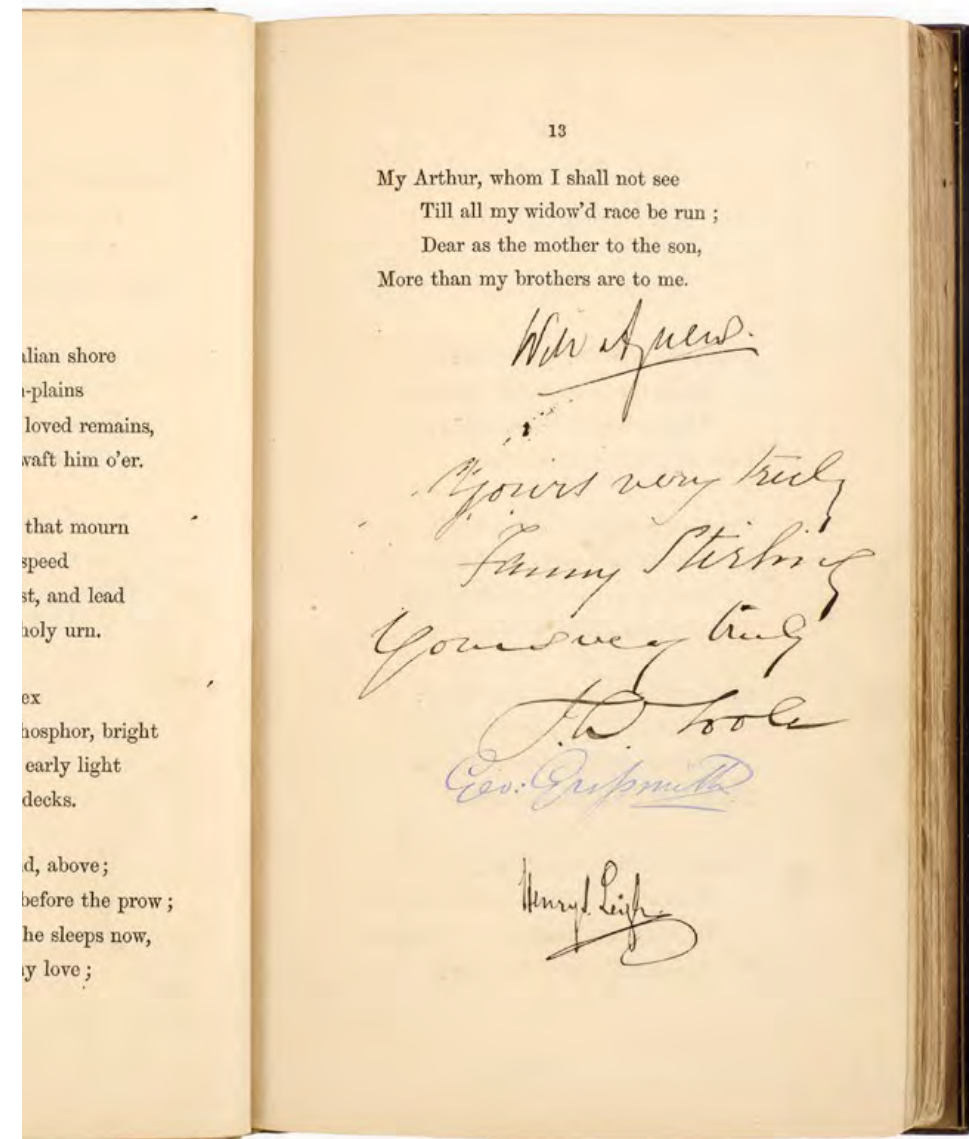 alian shore
-plains
loved remains,
waft him o'er.
that mourn
speed
st, and lead
holy urn.
ex
hosphor, bright
early light
decks.
d, above;
before the prow;
he sleeps now,
y love;
13
My Arthur, whom I shall not see
Till all my widow'd race be run;
Dear as the mother to the son,
More than my brothers are to me.
Will Agnew.
Yours very truly
Fanny Stirling
Yours very truly
J. L. Toole
Geo: Grossmith
Henry S. Leigh